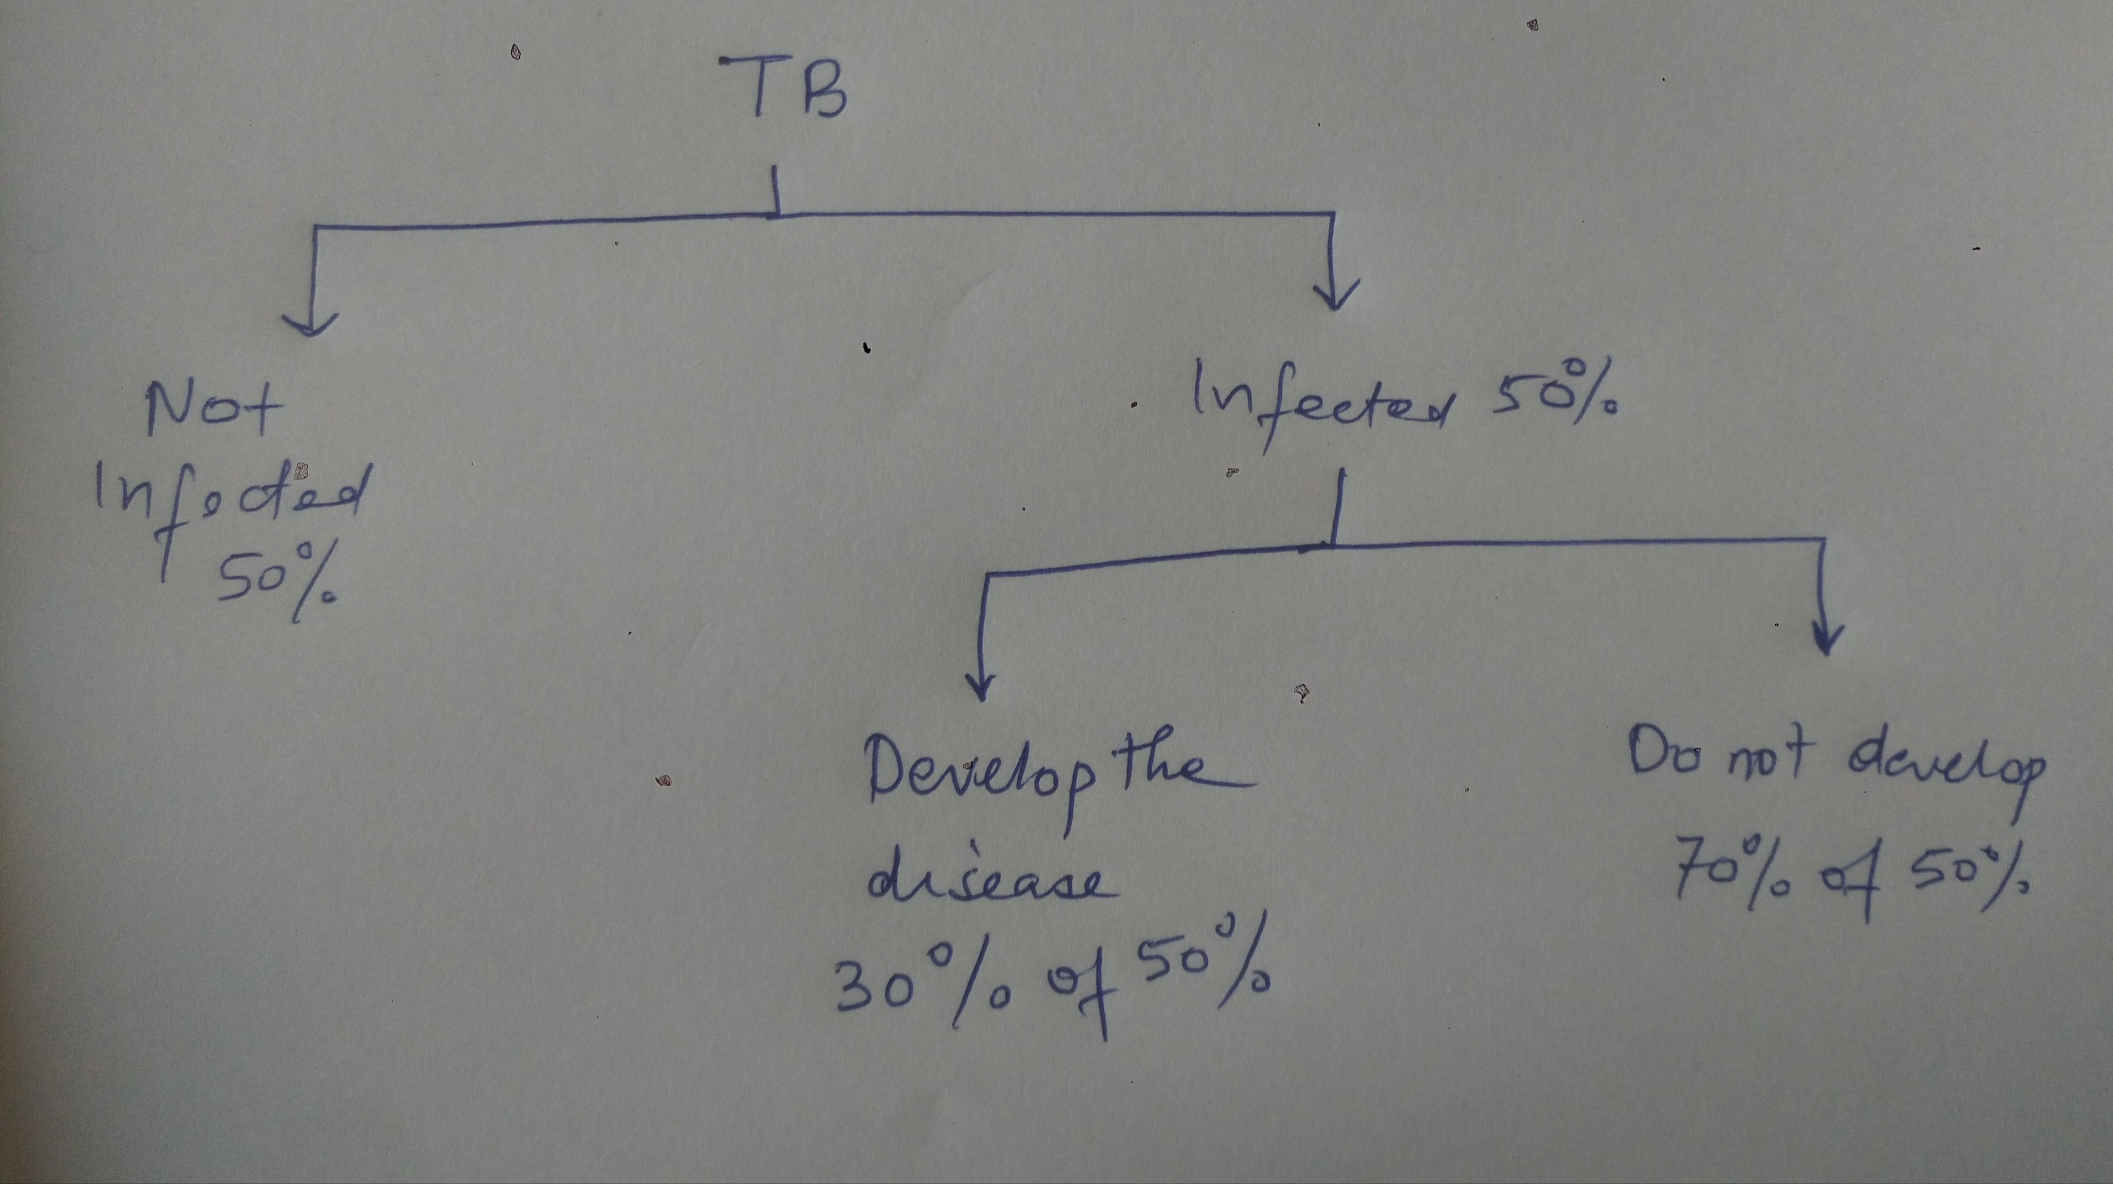 TB
Not
Infected
50%
Infected 50%
Develop the
disease
30% of 50%
Do not develop
70% of 50%